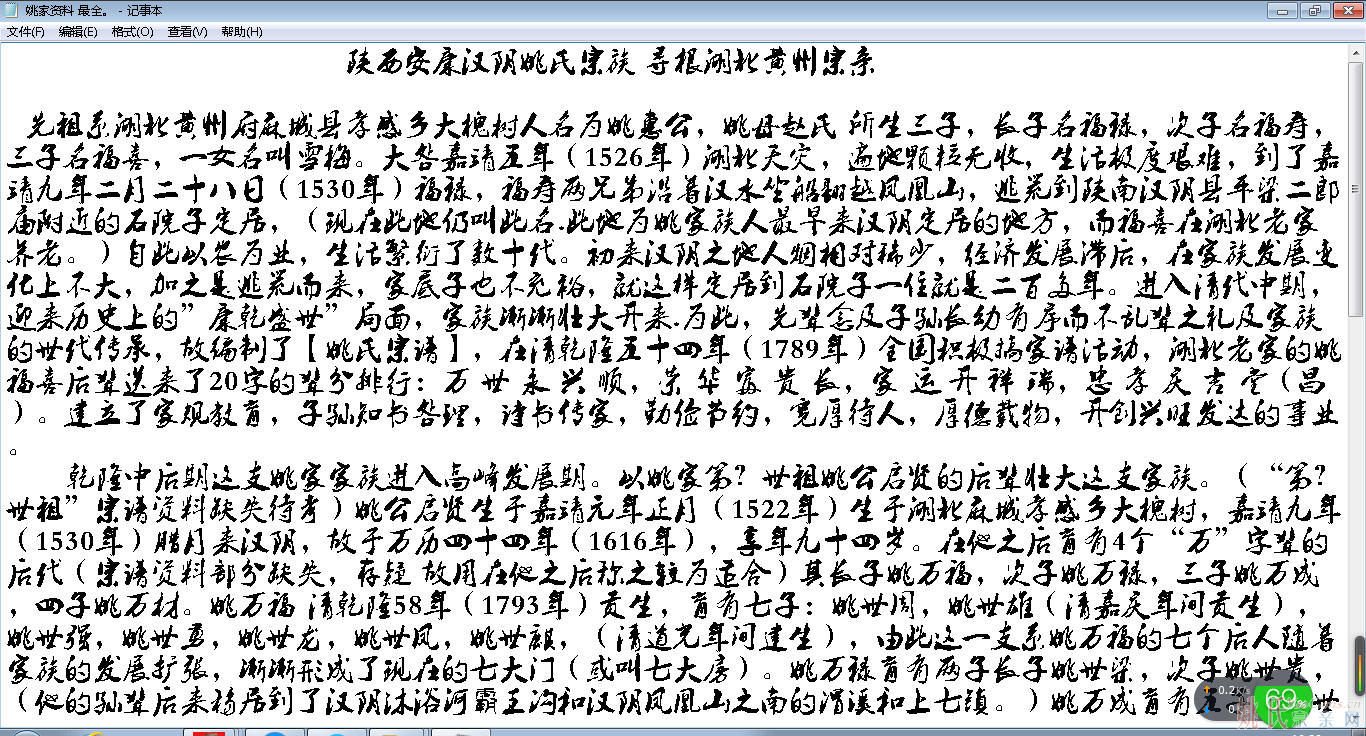 姚家资料 最全。 - 记事本
文件(F) 编辑(E) 格式(O) 查看(V) 帮助(H)
陕西安康汉阴姚氏宗族 寻根湖北黄州宗亲
先祖系湖北黄州府麻城县孝感乡大槐树人名为姚惠公，姚母赵氏 所生三子，长子名福禄，次子名福寿，
三子名福喜，一女名叫雪梅。大明嘉靖五年（1526年）湖北天灾，遍地颗粒无收，生活极度艰难，到了嘉
靖九年二月二十八日（1530年）福禄，福寿两兄弟沿着汉水坐船翻越凤凰山，逃荒到陕南汉阴县平梁二郎
庙附近的石院子定居，（现在此地仍叫此名.此地为姚家族人最早来汉阴定居的地方，而福喜在湖北老家
养老。）自此以农为业，生活繁衍了数十代。初来汉阴之地人烟相对稀少，经济发展滞后，在家族发展变
化上不大，加之是逃荒而来，家底子也不充裕，就这样定居到石院子一住就是二百多年。进入清代中期，
迎来历史上的”康乾盛世”局面，家族渐渐壮大开来.为此，先辈念及子孙长幼有序而不乱辈之礼及家族
的世代传承，故编制了【姚氏宗谱】，在清乾隆五十四年（1789年）全国积极搞家谱活动，湖北老家的姚
福喜后辈送来了20字的辈分排行：万 世 永 兴 顺，荣 华 富 贵 长，家 运 开 祥 瑞，忠 孝 庆 吉 堂（昌
）。建立了家规教育，子孙知书答理，诗书传家，勤俭节约，宽厚待人，厚德载物，开创兴旺发达的事业
。
乾隆中后期这支姚家家族进入高峰发展期。以姚家第？世祖姚公启贤的后辈壮大这支家族。（“第？
世祖”宗谱资料缺失待考）姚公启贤生于嘉靖元年正月（1522年）生于湖北麻城孝感乡大槐树，嘉靖九年
（1530年）腊月来汉阴，故于万历四十四年（1616年），享年九十四岁。在他之后育有4个“万”字辈的
后代（宗谱资料部分缺失，存疑 故用在他之后称之较为适合）其长子姚万福，次子姚万禄，三子姚万成
，四子姚万材。姚万福 清乾隆58年（1793年）贡生，育有七子：姚世周，姚世雄（清嘉庆年间贡生），
姚世强，姚世勇，姚世龙，姚世凤，姚世麒，（清道光年间建生），由此这一支系姚万福的七个后人随着
家族的发展扩张，渐渐形成了现在的七大门（或叫七大房）。姚万禄育有两子长子姚世梁，次子姚世贵，
（他的孙辈后来移居到了汉阴沐浴河霸王沟和汉阴凤凰山之南的渭溪和上七镇。）姚万成育有
0.2K/s
69%